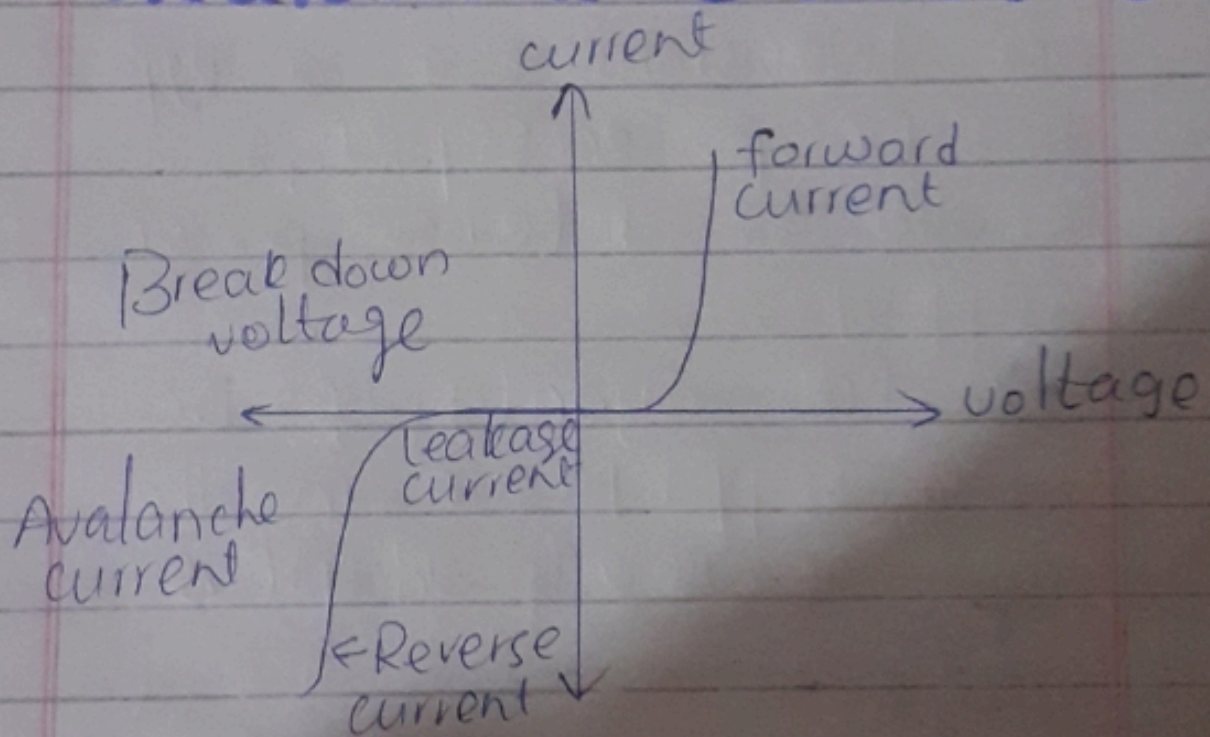 current
forward
current
Break down
voltage
voltage
Leakage
current
Avalanche
current
←Reverse
current